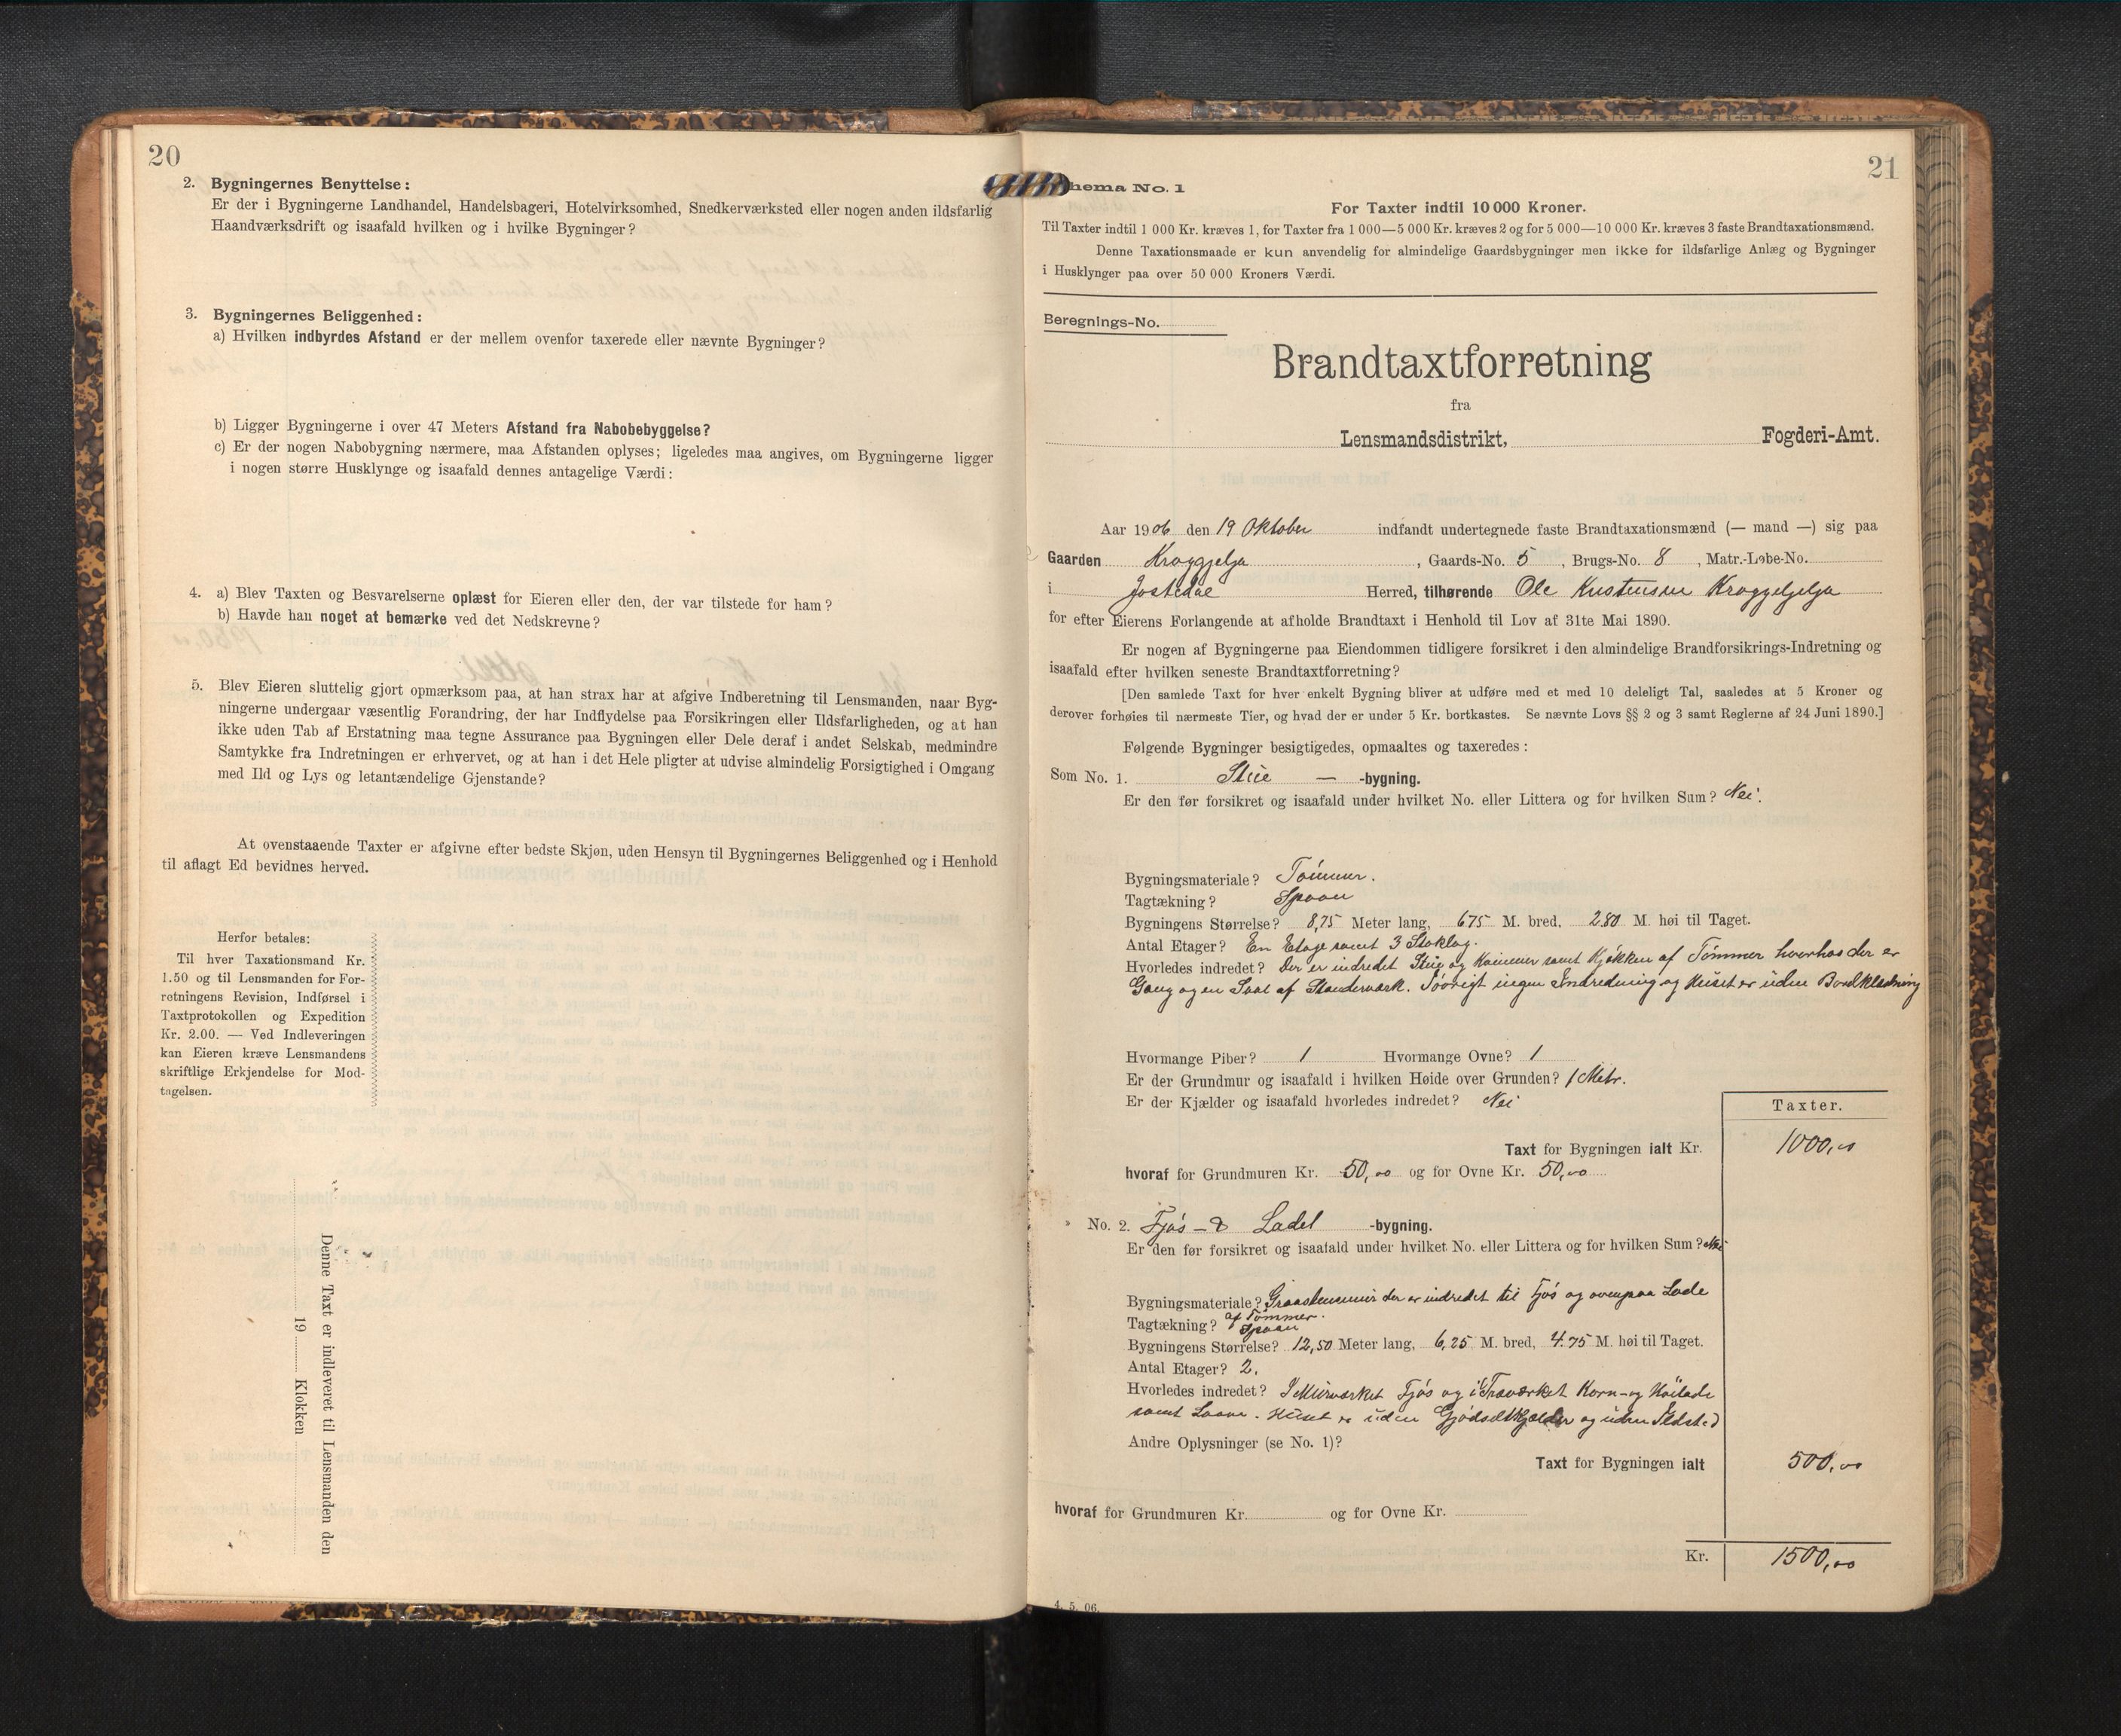 20
2. Bygningernes Benyttelse:
Er der i Bygningerne Landhandel, Handelsbageri, Hotelvirksomhed, Snedkerværksted eller nogen anden ildsfarlig
Haandværksdrift og isaafald hvilken og i hvilke Bygninger?
3. Bygningernes Beliggenhed:
a) Hvilken indbyrdes Afstand er der mellem ovenfor taxerede eller nævnte Bygninger?
b) Ligger Bygningerne i over 47 Meters Afstand fra Nabobebyggelse?
c) Er der nogen Nabobygning nærmere, maa Afstanden oplyses; ligeledes maa angives, om Bygningerne ligger
i nogen større Husklynge og isaafald dennes antagelige Værdi:
4. a) Blev Taxten og Besvarelserne oplæst for Eieren eller den, der var tilstede for ham?
b) Havde han noget at bemærke ved det Nedskrevne?
5. Blev Eieren sluttelig gjort opmærksom paa, at han strax har at afgive Indberetning til Lensmanden, naar Byg-
ningerne undergaar væsentlig Forandring, der har Indflydelse paa Forsikringen eller Ildsfarligheden, og at han
ikke uden Tab af Erstatning maa tegne Assurance paa Bygningen eller Dele deraf i andet Selskab, medmindre
Samtykke fra Indretningen er erhvervet, og at han i det Hele pligter at udvise almindelig Forsigtighed i Omgang
med Ild og Lys og letantændelige Gjenstande?
At ovenstaaende Taxter er afgivne efter bedste Skjøn, uden Hensyn til Bygningernes Beliggenhed og i Henhold
til aflagt Ed bevidnes herved.
Herfor betales:
Til hver Taxationsmand Kr.
1.50 og til Lensmanden for For-
retningens Revision, Indførsel i
Taxtprotokollen og Expedition
Kr. 2.00. — Ved Indleveringen
kan Eieren kræve Lensmandens
skriftlige Erkjendelse for Mod-
tagelsen.
Denne Taxt er indleveret til Lensmanden den
19 Klokken
21
hema No. 1
For Taxter indtil 10 000 Kroner.
Til Taxter indtil 1 000 Kr. kræves 1, for Taxter fra 1 000—5 000 Kr. kræves 2 og for 5 000—10 000 Kr. kræves 3 faste Brandtaxationsmænd.
Denne Taxationsmaade er kun anvendelig for almindelige Gaardsbygninger men ikke for ildsfarlige Anlæg og Bygninger
i Husklynger paa over 50 000 Kroners Værdi.
Beregnings-No.
Brandtaxtforretning
fra
Lensmandsdistrikt, Fogderi-Amt.
Aar 1906 den 19 Oktober indfandt undertegnede faste Brandtaxationsmænd (— mand —) sig paa
Gaarden Kroggjelga, Gaards-No. 5, Brugs-No. 8, Matr.-Løbe-No.
i Jostedal Herred, tilhørende Ole Kristensen Kroggelgelga
for efter Eierens Forlangende at afholde Brandtaxt i Henhold til Lov af 31te Mai 1890.
Er nogen af Bygningerne paa Eiendommen tidligere forsikret i den almindelige Brandforsikrings-Indretning og
isaafald efter hvilken seneste Brandtaxtforretning?
[Den samlede Taxt for hver enkelt Bygning bliver at udføre med et med 10 deleligt Tal, saaledes at 5 Kroner og
derover forhøies til nærmeste Tier, og hvad der er under 5 Kr. bortkastes. Se nævnte Lovs §§ 2 og 3 samt Reglerne af 24 Juni 1890.]
Følgende Bygninger besigtigedes, opmaaltes og taxeredes:
Som No. 1. Stue — -bygning.
Er den før forsikret og isaafald under hvilket No. eller Littera og for hvilken Sum? Nei.
Bygningsmateriale? Tømmer.
Tagtækning? Spaan
Bygningens Størrelse? 8,75 Meter lang, 675 M. bred, 2.80 M. høi til Taget.
Antal Etager? En Etage samt 3 Stoklag.
Hvorledes indredet? Der er indredet Stue og Kammer samt Kjøkken af Tømmer hvorhos der er
Gang og en Sval af Standerværk. Iøvrigt ingen Indredning og Huset er uden Bordklædning
Hvormange Piber? 1 Hvormange Ovne? 1
Er der Grundmur og isaafald i hvilken Høide over Grunden? 1 Metr.
Er der Kjælder og isaafald hvorledes indredet? Nei
Taxter.
Taxt for Bygningen ialt Kr. 1000,00
hvoraf for Grundmuren Kr. 50,00 og for Ovne Kr. 50,00
» No. 2. Fjøs - & Lade -bygning.
Er den før forsikret og isaafald under hvilket No. eller Littera og for hvilken Sum? Nei
Bygningsmateriale? Graastensmur der er indredet til Fjøs og ovenpaa Lade
af Tømmer.
Tagtækning? Spaan
Bygningens Størrelse? 12,50 Meter lang, 6,25 M. bred, 4.75 M. høi til Taget.
Antal Etager? 2.
Hvorledes indredet? I Murværket Fjøs og i Træværket Korn- og Høilade
samt Laave. Huset er uden Gjødselkjælder og uden Ildsted
Andre Oplysninger (se No. 1)?
Taxt for Bygningen ialt 500,00
hvoraf for Grundmuren Kr. og for Ovne Kr.
Kr. 1500,00
4. 5. 06.